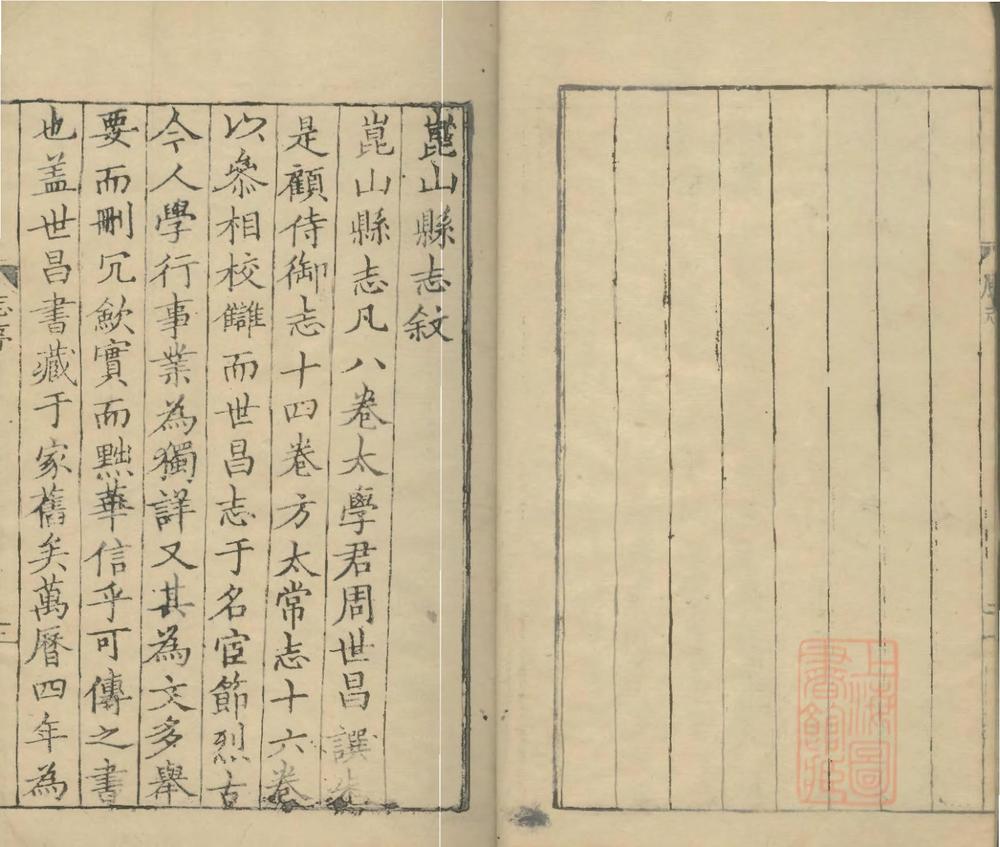 崑山縣志敘
崑山縣志凡八卷太學君周世昌譔先
是顧侍御志十四卷方太常志十六卷
以叅相校讎而世昌志于名宦節烈古
今人學行事業為獨詳又其為文多舉
要而刪冗歛實而黜華信乎可傳之書
也盖世昌書藏于家舊矣萬曆四年為
上海圖書館藏